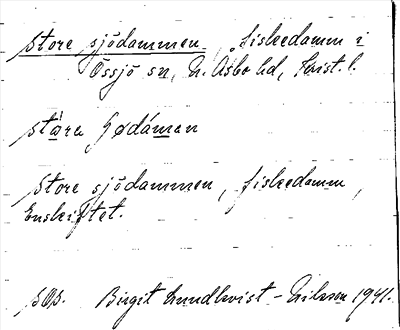 Store sjödammen, fiskedamm i
Össjö sn, N. Åsbo hd, Krist. l.
stära
Store sjödammen, fiskedamm,
Enskiftet.
Birgit Lundkvist-Nilsson 1941.